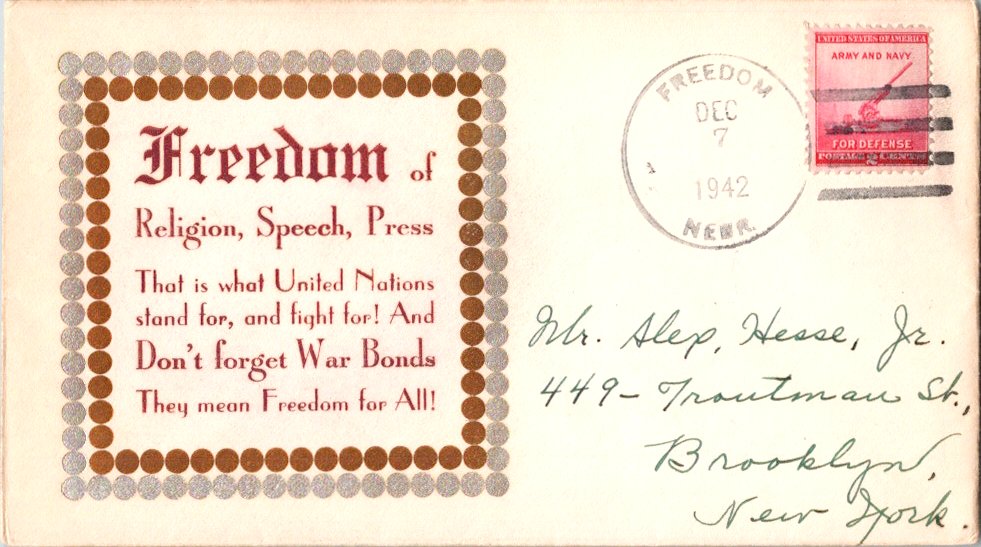 Freedom of
Religion, Speech, Press
That is what United Nations
stand for, and fight for! And
Don't forget War Bonds
They mean Freedom for All!
FREEDOM
DEC
7
1942
NEBR.
UNITED STATES OF AMERICA
ARMY AND NAVY
FOR DEFENSE
POSTAGE 2 CENTS
Mr. Alex, Hesse, Jr.
449- Troutman St.,
Brooklyn,
New York.